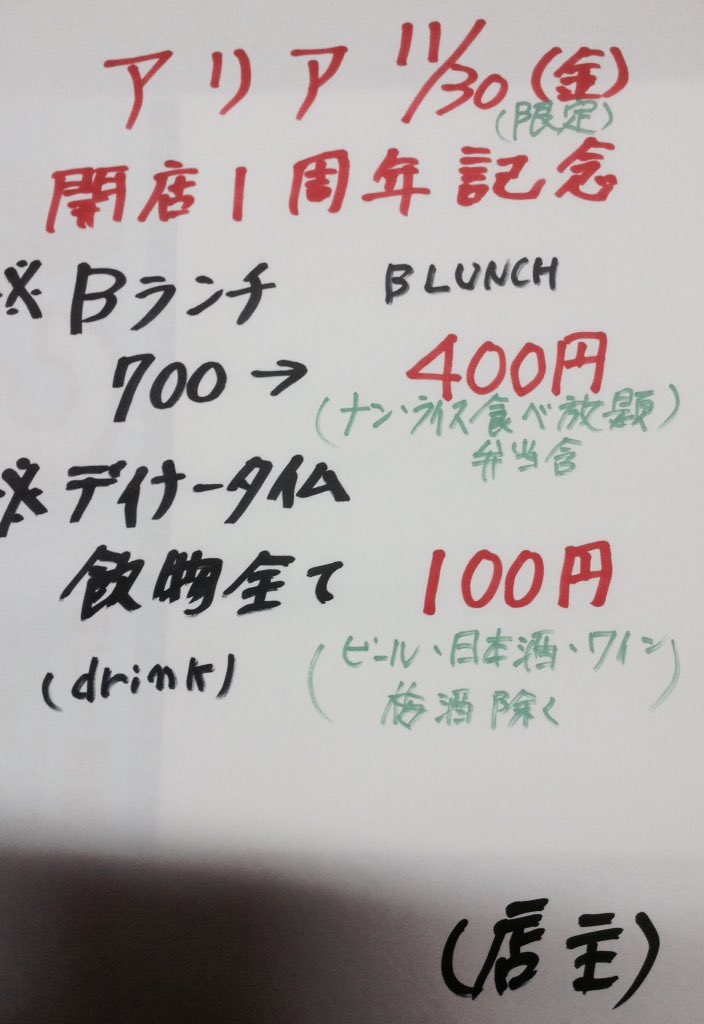 アリア 11/30(金)
(限定)
開店1周年記念
※Bランチ B LUNCH
700→ 400円
(ナン・ライス食べ放題)
弁当含
※ディナータイム
飲物全て 100円
(drink) (ビール・日本酒・ワイン
梅酒除く)
(店主)